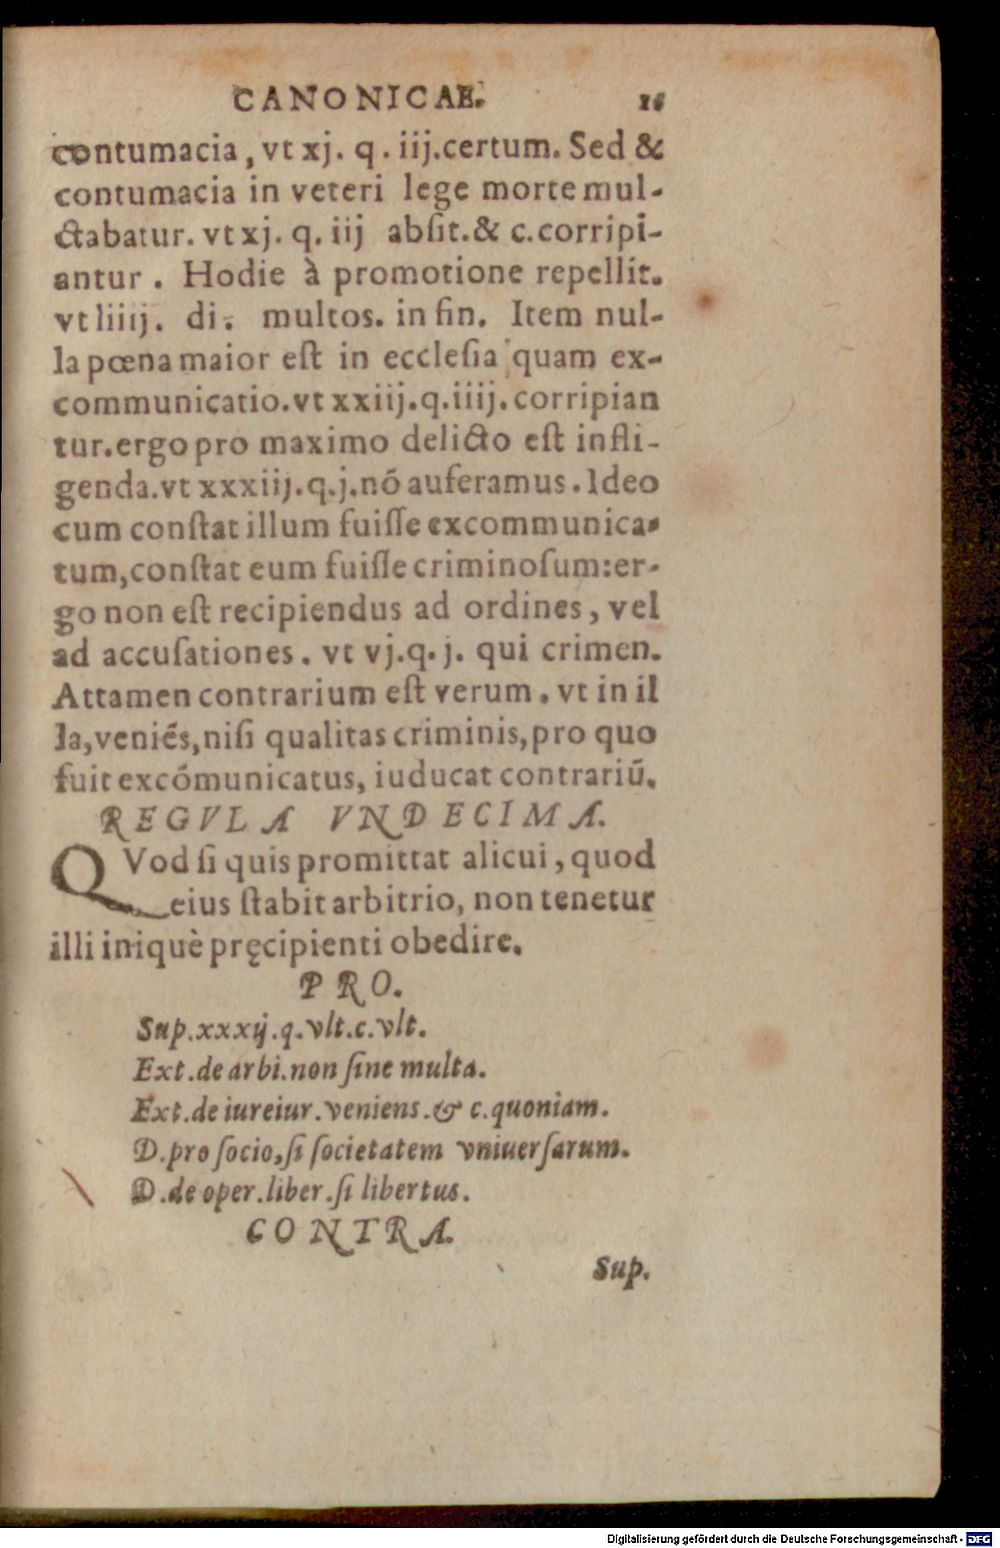 CANONICAE. 16
contumacia, vt xj. q. iij. certum. Sed &
contumacia in veteri lege morte mul-
ctabatur. vt xj. q. iij abſit. & c. corripi-
antur. Hodie à promotione repellit.
vt liiij. di. multos. in fin. Item nul-
la pœna maior eſt in eccleſia quam ex-
communicatio. vt xxiij. q. iiij. corripian
tur. ergo pro maximo delicto eſt infli-
genda. vt xxxiij. q. j. nõ auferamus. Ideo
cum conſtat illum fuiſſe excommunica-
tum, conſtat eum fuiſſe criminoſum: er-
go non eſt recipiendus ad ordines, vel
ad accuſationes. vt vj. q. j. qui crimen.
Attamen contrarium eſt verum. vt in il
la, veniẽs, niſi qualitas criminis, pro quo
fuit excõmunicatus, iuducat contrariũ.
REGVLA VNDECIMA.
QVod ſi quis promittat alicui, quod
eius ſtabit arbitrio, non tenetur
illi iniquè pręcipienti obedire.
PRO.
Sup. xxxij. q. vlt. c. vlt.
Ext. de arbi. non ſine multa.
Ext. de iureiur. veniens. & c. quoniam.
D. pro ſocio, ſi ſocietatem vniuerſarum.
D. de oper. liber. ſi libertus.
CONTRA.
Sup.
Digitalisierung gefördert durch die Deutsche Forschungsgemeinschaft - DFG